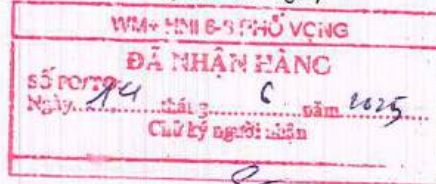 WM+ HNI 6-8 PHỐ VỌNG
ĐÃ NHẬN HÀNG
SỐ PO/TO:
Ngày 14 tháng 6 năm 2025
Chữ ký người nhận